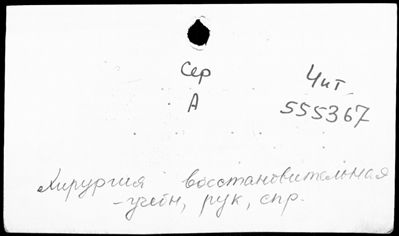 Сер Чит.
А 555367
Хирургия восстановительная
- учебн, рук, спр.